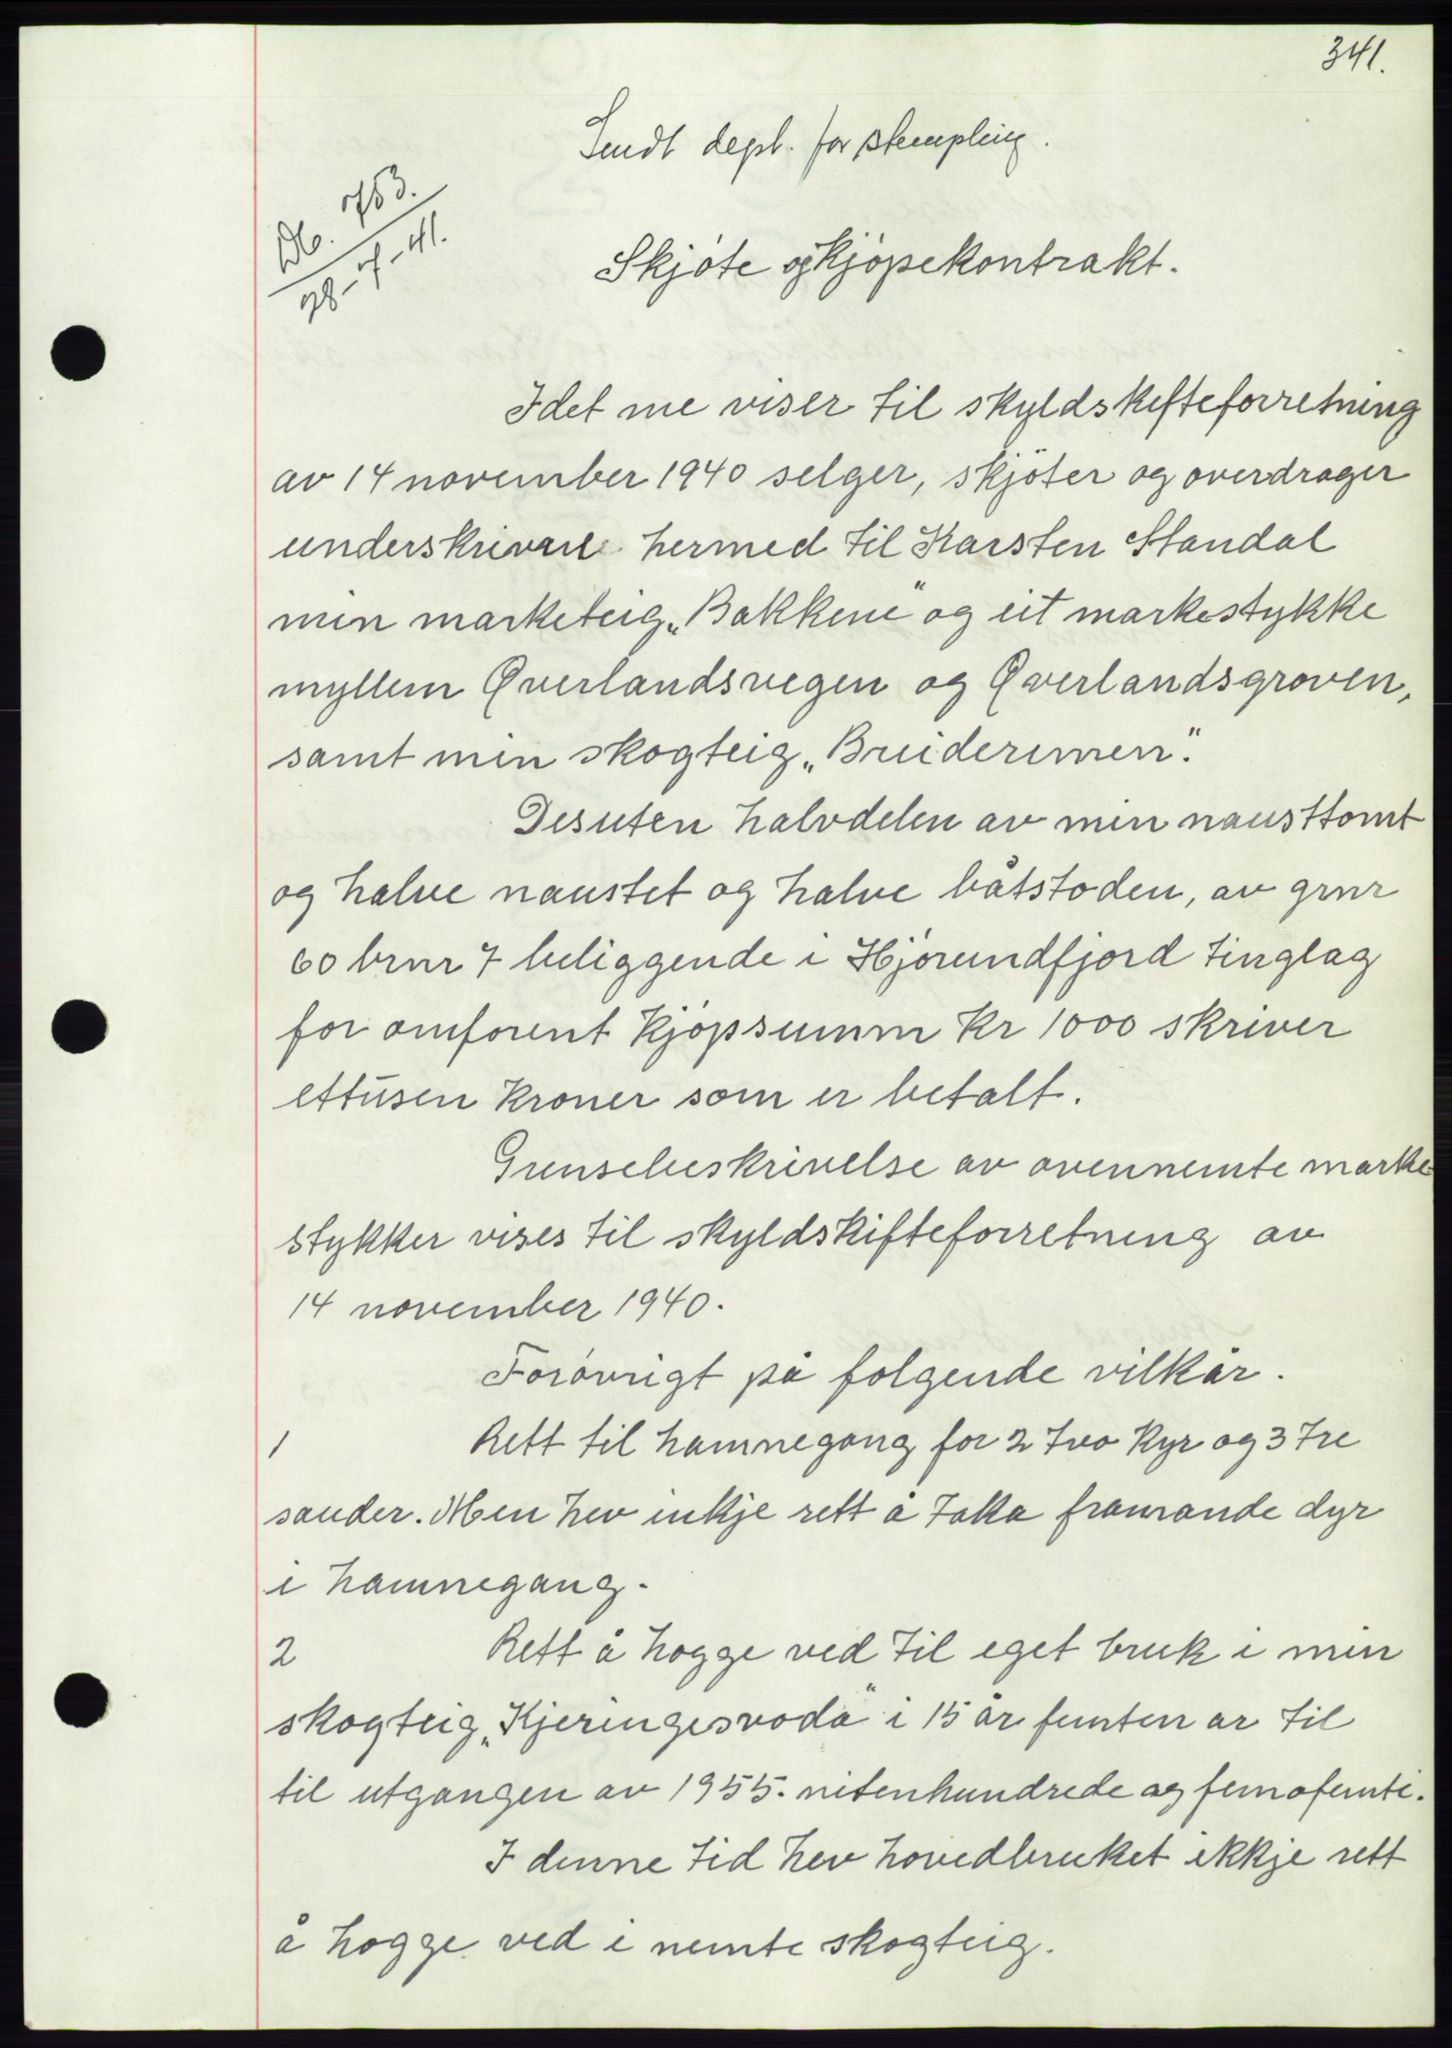 341.
Sendt dept. for stempling.
Db. 753.
28-7-41.
Skjóte og kjópekontrakt.
Idet me viser til skyldskifteforretning
av 14 november 1940 selger, skjöter og overdrager
underskrivare hermed til Karsten Standal
min marketeig „Bakkene" og eit markestykke
myllem Øverlandsvegen og Øverlandsgroven,
samt min skogteig „Breideremen".
Desuten halvdelen av min nausttomt
og halve naustet og halve båtstoden, av grnr
60 brnr 7 beliggende i Hjórundfjord tinglag
for omforent kjópsumm kr 1000 skriver
ettusen kroner som er betalt.
Grensebeskrivelse av ovennemte marke
stykker vises til skyldskifteforretning av
14 november 1940.
Forövrigt på folgende vilkår.
1 Rett til hamnegang for 2 tvo kyr og 3 tre
sauder. Men hev inkje rett å taka framande dyr
i hamnegang.
2 Rett å hogge ved til eget bruk i min
skogteig „Kjeringesvoda" i 15 år femten ar til
til utgangen av 1955. nitenhundrede og femofemti.
I denne tid hev hovedbruket ikkje rett
å hogge ved i nemte skogteig.